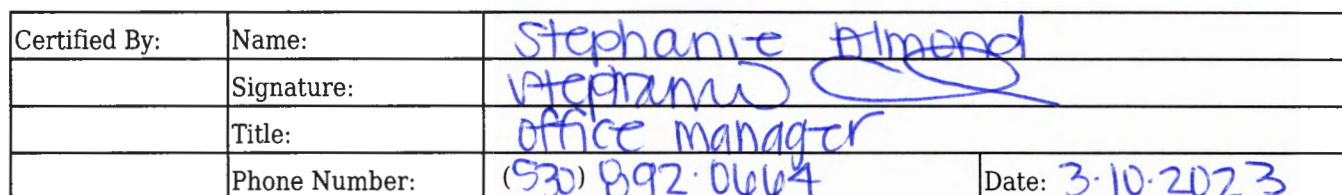 Certified By: Name: Stephanie Almond
Signature: Stephanie
Title: office manager
Phone Number: (530) 892·0664 Date: 3·10·2023